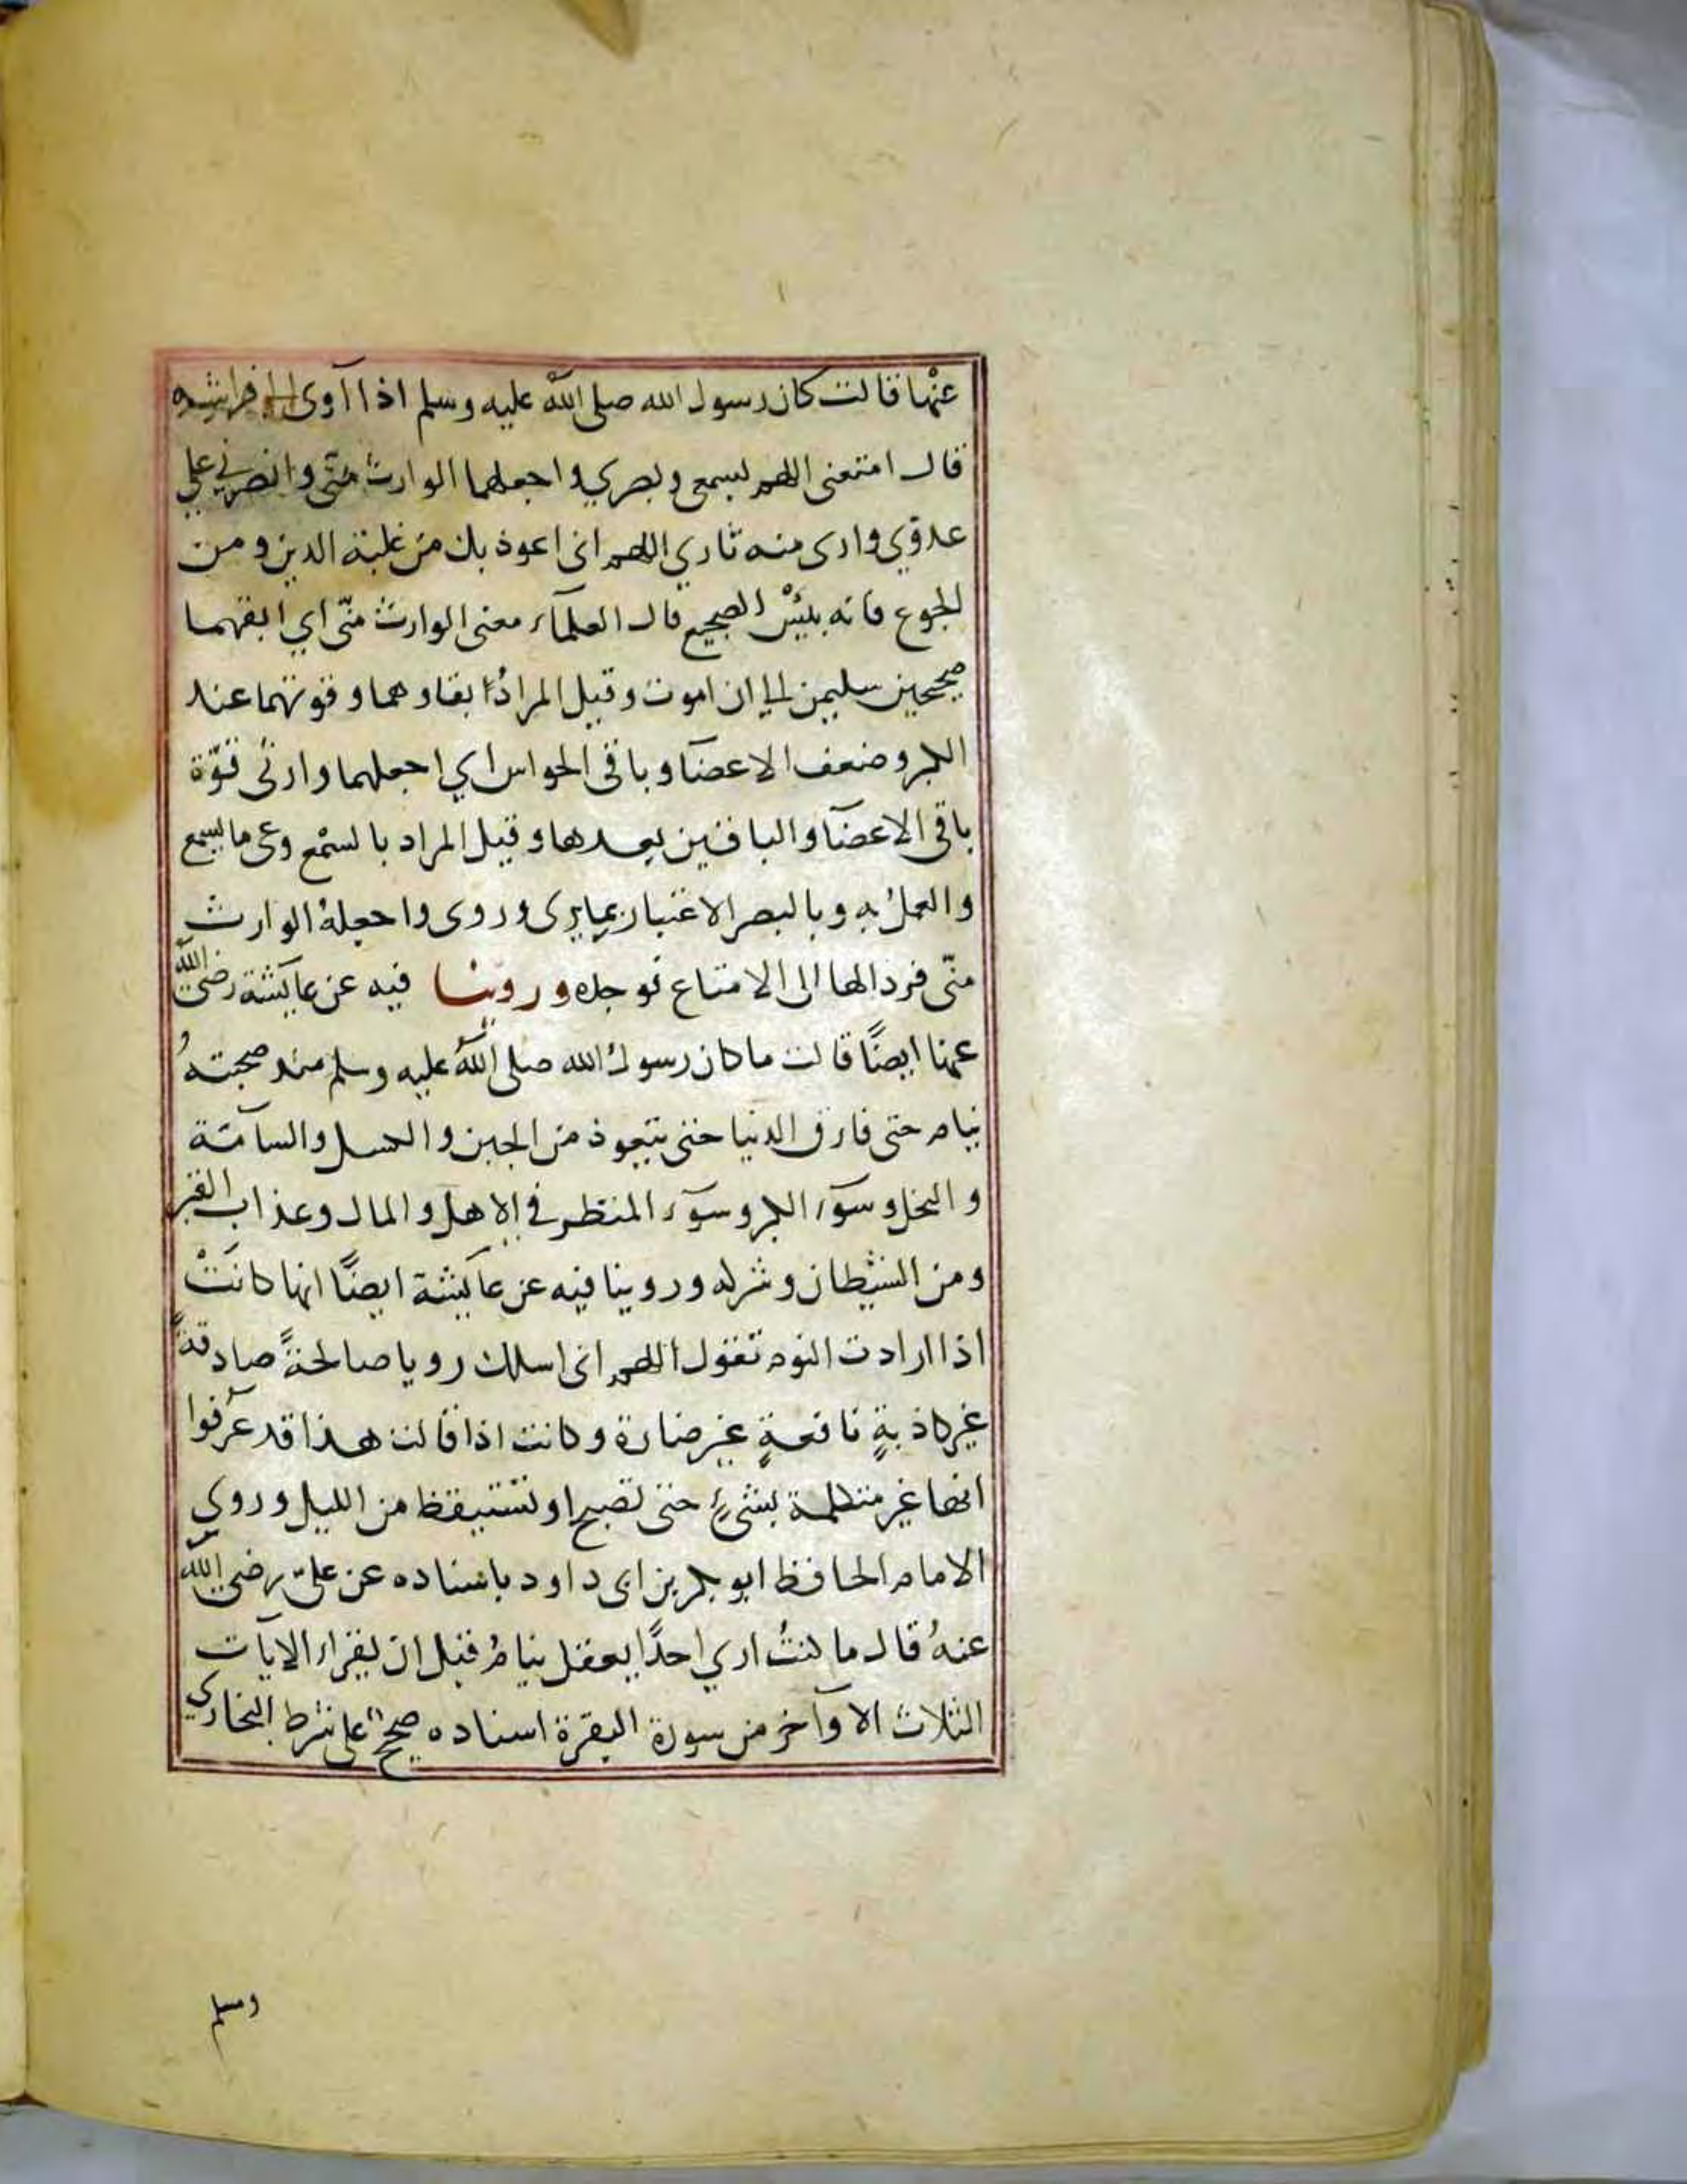 عنْها قالت كان رسول الله صلى الله عليه وسلم اذا اوى الى فراشه
قال امتعنى اللهم بسمعي وبصري واجعلهما الوارث منّى وانصرني على
عدوّي وارى منه ثاري اللهم انى اعوذ بك من غلبة الدين ومن
الجوع فانه بئسْ الضجيع قال العلمآء معنى الوارث منّى اي ابقهما
صحيحين سليمين الى ان اموت وقيل المراد بقاوهما وقوتهما عند
الكبر وضعف الاعضا وباقى الحواس اي اجعلهما وارثى قوّة
باقى الاعضا والباقيين بعدها وقيل المراد بالسمْع وعى ما يسمع
والعملُ به وبالبصر الاعتبار بما يرى وروى واجعلهُ الوارث
منّى فرد الها الى الامتاع فوحده وروينا فيه عن عايشة رضى الله
عنها ايضًا قالت ما كان رسولُ الله صلى الله عليه وسلم منذ صحبتهُ
ينام حتى فارق الدنيا حتى يتعوذ من الجبن والكسل والسآمة
والبخل وسوٓء الكبر وسوٓء المنظر فى الاهل والمال وعذاب القبر
ومن الشيطان وشركه وروينا فيه عن عايشة ايضًا انها كانتْ
اذا ارادت النوم تقول اللهم انى اسلك رويا صالحةً صادقةً
غير كاذبةٍ نافعةٍ غير ضارة وكانت اذا قالت هذا قد عَرَفوا
انها غير متكلمة بشىءٍ حتى تصبح او تستيقظ من الليل وروى
الامام الحافظ ابو بكر بن ابى داود باسناده عن علىّ رضى الله
عنهُ قال ما كنتُ ارى احدًا يعقل ينامُ قبل ان يقراء الايآت
الثلاث الاوآخر من سورة البقرة اسناده صحيح على شرط البخاري
ومسلم